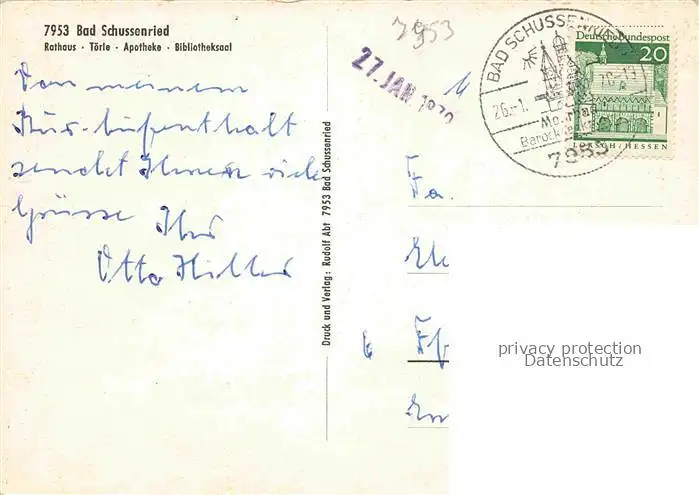 7953 Bad Schussenried
Rathaus · Törle · Apotheke · Bibliotheksaal
7953
27. JAN 1970
BAD SCHUSSENRIED
26.-1.
Barock
7953
Deutsche Bundespost
20
LORSCH/HESSEN
Von meinem
Kur-Aufenthalt
sendet Ihnen viele
Grüsse Ihr
Otto Hiller
Druck und Verlag: Rudolf Abt 7953 Bad Schussenried
Fa.
privacy protection
Datenschutz